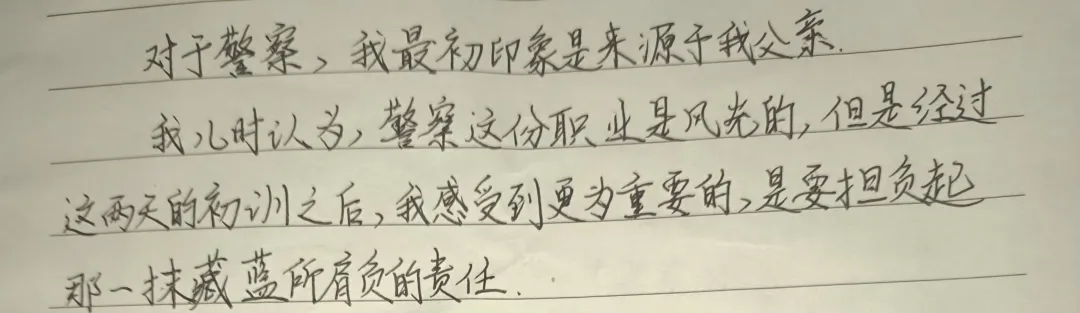 对于警察，我最初印象是来源于我父亲.
我儿时认为，警察这份职业是风光的，但是经过
这两天的初训之后，我感受到更为重要的，是要担负起
那一抹藏蓝所肩负的责任.